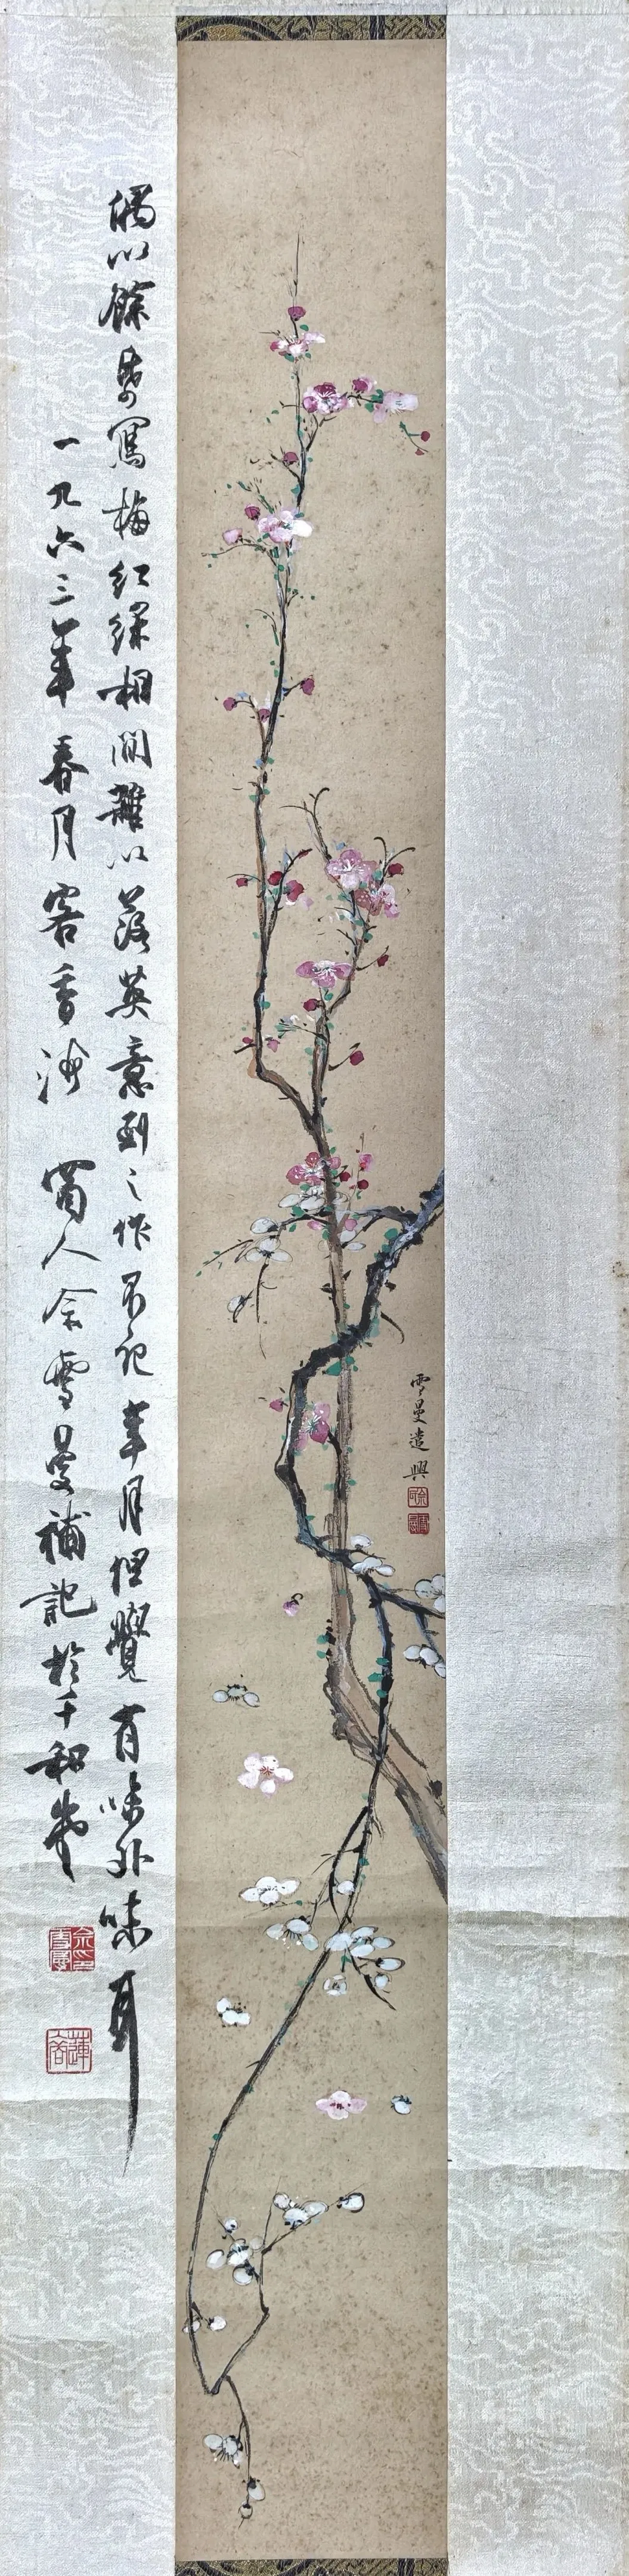 雪曼遣興
偶以餘寫梅紅綠相間雜以落英意到之作不記年月但覺有味外味耳
一九六三年春月客香海 蜀人余雪曼補記於千和
余印雪曼